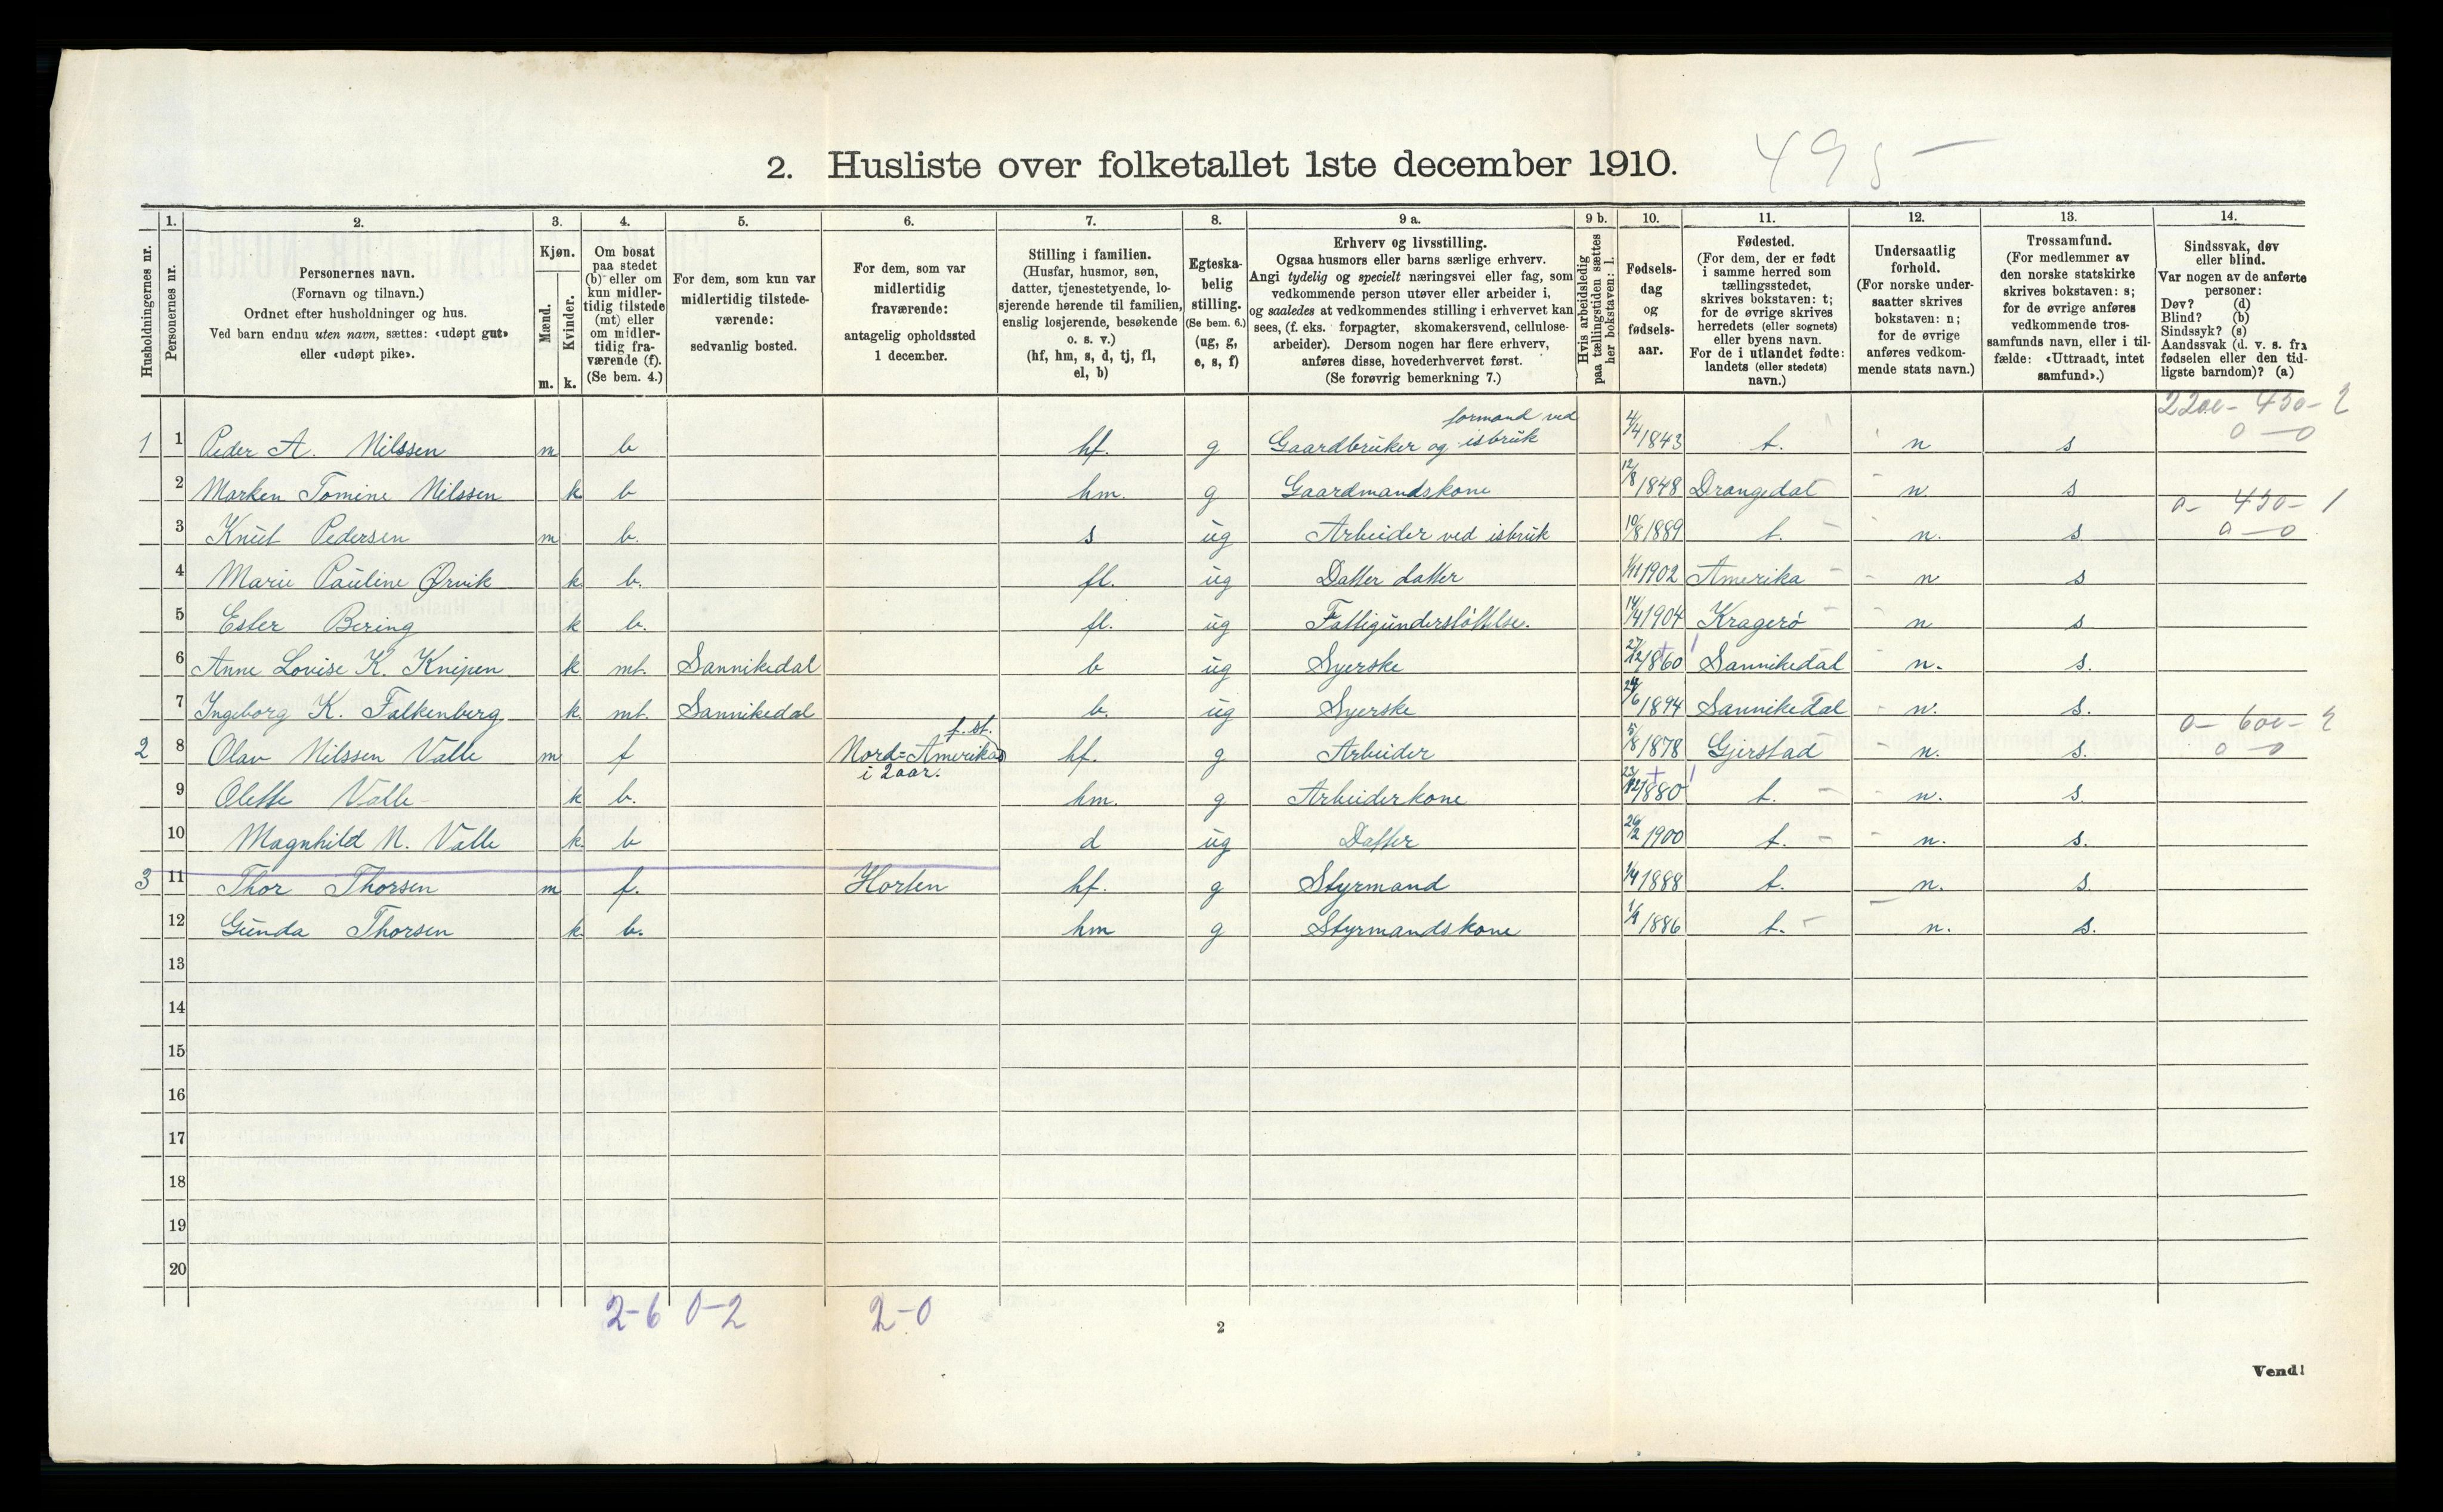 495 -
2. Husliste over folketallet 1ste december 1910.
Husholdningernes nr.
1. Personernes nr.
2. Personernes navn.
(Fornavn og tilnavn.)
Ordnet efter husholdninger og hus.
Ved barn endnu uten navn, sættes: «udøpt gut»
eller «udøpt pike».
3. Kjøn.
Mænd. m.
Kvinder. k.
4. Om bosat
paa stedet
(b) eller om
kun midler-
tidig tilstede
(mt) eller
om midler-
tidig fra-
værende (f).
(Se bem. 4.)
5. For dem, som kun var
midlertidig tilstede-
værende:
sedvanlig bosted.
6. For dem, som var
midlertidig
fraværende:
antagelig opholdssted
1 december.
7. Stilling i familien.
(Husfar, husmor, søn,
datter, tjenestetyende, lo-
sjerende hørende til familien,
enslig losjerende, besøkende
o. s. v.)
(hf, hm, s, d, tj, fl,
el, b)
8. Egteska-
belig
stilling.
(Se bem. 6.)
(ug, g,
e, s, f)
9 a. Erhverv og livsstilling.
Ogsaa husmors eller barns særlige erhverv.
Angi tydelig og specielt næringsvei eller fag, som
vedkommende person utøver eller arbeider i,
og saaledes at vedkommendes stilling i erhvervet kan
sees, (f. eks. forpagter, skomakersvend, cellulose-
arbeider). Dersom nogen har flere erhverv,
anføres disse, hovederhvervet først.
(Se forøvrig bemerkning 7.)
9 b. Hvis arbeidsledig
paa tællingstiden sættes
her bokstaven: l.
10. Fødsels-
dag
og
fødsels-
aar.
11. Fødested.
(For dem, der er født
i samme herred som
tællingsstedet,
skrives bokstaven: t;
for de øvrige skrives
herredets (eller sognets)
eller byens navn.
For de i utlandet fødte:
landets (eller stedets)
navn.)
12. Undersaatlig
forhold.
(For norske under-
saatter skrives
bokstaven: n;
for de øvrige
anføres vedkom-
mende stats navn.)
13. Trossamfund.
(For medlemmer av
den norske statskirke
skrives bokstaven: s;
for de øvrige anføres
vedkommende tros-
samfunds navn, eller i til-
fælde: «Uttraadt, intet
samfund».)
14. Sindssvak, døv
eller blind.
Var nogen av de anførte
personer:
Døv? (d)
Blind? (b)
Sindssyk? (s)
Aandssvak (d. v. s. fra
fødselen eller den tid-
ligste barndom)? (a)
formand ved
1 1 Peder A. Nilssen m b hf. g Gaardbruker og isbruk 4/4 1843 t. n s 0 - 0
2 Marken Tomine Nilssen k b hm. g Gaardmandskone 12/8 1848 Drangedal n. s
3 Knut Pedersen m b. s ug Arbeider ved isbruk 10/8 1889 t. n. s 0 - 0
4 Marie Pauline Ørvik k b. fl. ug Datter datter 1/11 1902 Amerika n s
5 Ester Bering k b. fl. ug Fattigunderstøttelse. 14/4 1904 Kragerö n s
6 Anne Lovise K. Knipen k mt. Sannikedal b ug Syerske 27/12 1860 Sannikedal n. s.
7 Ingeborg K. Falkenberg k. mt. Sannikedal b. ug Syerske 24/6 1894 Sannikedal n. s.
f. st.
2 8 Olav Nilssen Valle m f Nord=Amerika hf. g Arbeider 5/8 1878 Gjerstad n. s. 0 - 0
i 2 aar.
9 Olette Valle k b. hm. g Arbeiderkone 23/12 1880 t. n. s.
10 Magnhild N. Valle k. b d ug Datter 26/2 1900 t. n. s.
3 11 Thor Thorsen m f. Horten hf. g Styrmand 1/4 1888 t. n. s.
12 Gunda Thorsen k b. hm g Styrmandskone 1/9 1886 t. n. s.
13
14
15
16
17
18
19
20
2-6 0-2 2-0
2
Vend!